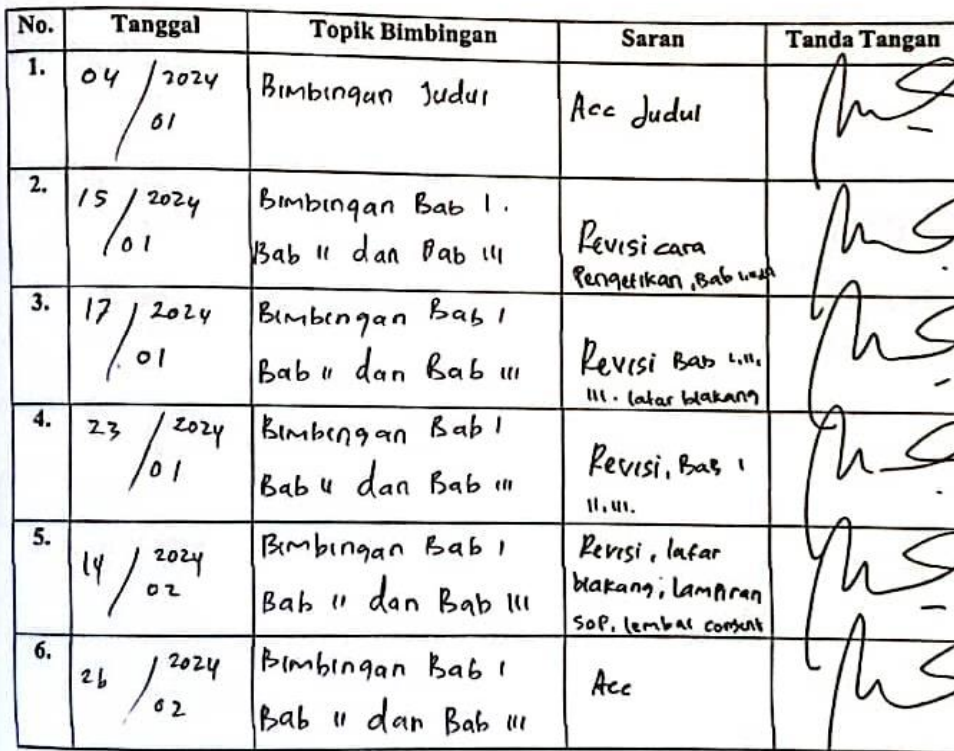 No. Tanggal Topik Bimbingan Saran Tanda Tangan
1. 04 / 2024 Bimbingan Judul
01 Acc Judul
2. 15 / 2024 Bimbingan Bab I.
01 Bab II dan Bab III Revisi cara
Pengetikan, Bab
3. 17 / 2024 Bimbingan Bab I
01 Bab II dan Bab III Revisi Bab I.II.
III. latar blakang
4. 23 / 2024 Bimbingan Bab I
01 Bab II dan Bab III Revisi, Bab I
II, III.
5. 14 / 2024 Bimbingan Bab I Revisi, latar
02 Bab II dan Bab III blakang, lampiran
SOP, lembar consent
6. 26 / 2024 Bimbingan Bab I Acc
02 Bab II dan Bab III